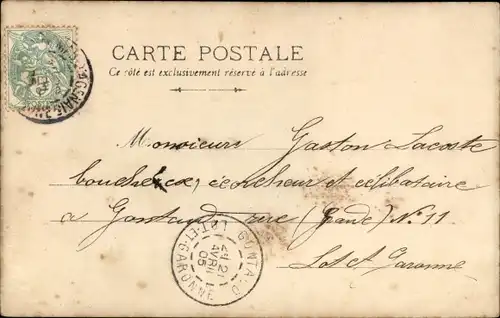 CARTE POSTALE
Ce côté est exclusivement réservé à l'adresse
Monsieur Gaston Lacoste
boucher, écorcheur et célibataire
à Gontaud rue (Grande) N° 11
Lot et Garonne
GONTAUD
21
AVRIL
05
LOT-ET-GARONNE